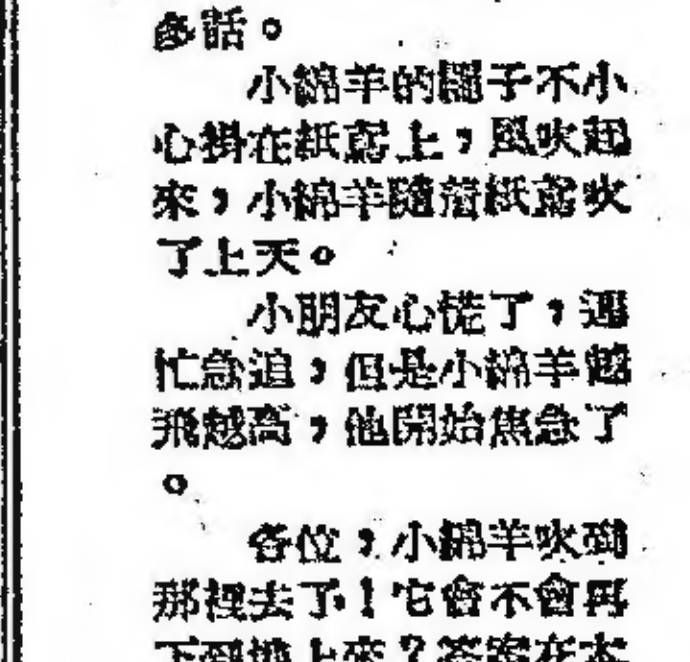 多話。
小綿羊的繩子不小
心掛在紙鳶上，風吹起
來，小綿羊隨着紙鳶吹
了上天。
小朋友心慌了，連
忙急追，但是小綿羊越
飛越高，他開始焦急了
。
各位，小綿羊吹到
那裡去了！它會不會再
下到地上來？答案在本